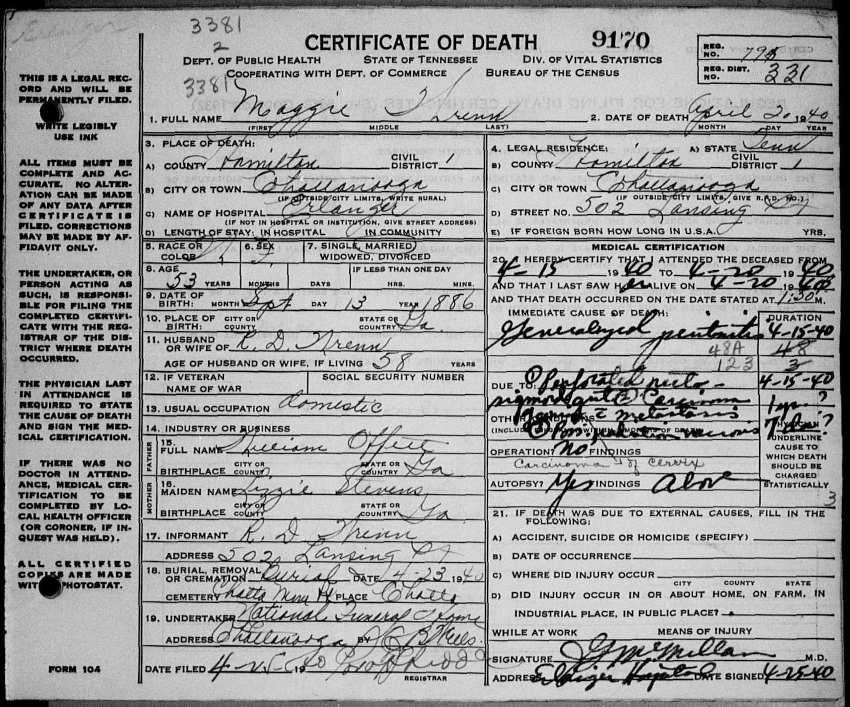 3381
2
3381
CERTIFICATE OF DEATH
9170
REG. NO. 795
REG. DIST. NO. 331
DEPT. OF PUBLIC HEALTH STATE OF TENNESSEE DIV. OF VITAL STATISTICS
COOPERATING WITH DEPT. OF COMMERCE BUREAU OF THE CENSUS
THIS IS A LEGAL RECORD AND WILL BE PERMANENTLY FILED.
WRITE LEGIBLY
USE INK
ALL ITEMS MUST BE COMPLETE AND ACCURATE. NO ALTERATION CAN BE MADE OF ANY DATA AFTER CERTIFICATE IS FILED. CORRECTIONS MAY BE MADE BY AFFIDAVIT ONLY.
THE UNDERTAKER, OR PERSON ACTING AS SUCH, IS RESPONSIBLE FOR FILING THE COMPLETED CERTIFICATE WITH THE REGISTRAR OF THE DISTRICT WHERE DEATH OCCURRED.
THE PHYSICIAN LAST IN ATTENDANCE IS REQUIRED TO STATE THE CAUSE OF DEATH AND SIGN THE MEDICAL CERTIFICATION.
IF THERE WAS NO DOCTOR IN ATTENDANCE, MEDICAL CERTIFICATION TO BE COMPLETED BY LOCAL HEALTH OFFICER (OR CORONER, IF INQUEST WAS HELD).
ALL CERTIFIED COPIES ARE MADE WITH PHOTOSTAT.
FORM 104
1. FULL NAME Maggie Wrenn
(FIRST) MIDDLE LAST)
2. DATE OF DEATH April 20 1940
MONTH DAY YEAR
3. PLACE OF DEATH:
A) COUNTY Hamilton CIVIL DISTRICT 1
B) CITY OR TOWN Chattanooga
(IF OUTSIDE CITY LIMITS, WRITE RURAL)
C) NAME OF HOSPITAL Erlanger
(IF NOT IN HOSPITAL OR INSTITUTION, GIVE STREET ADDRESS)
D) LENGTH OF STAY: IN HOSPITAL IN COMMUNITY
4. LEGAL RESIDENCE: A) STATE Tenn
B) COUNTY Hamilton CIVIL DISTRICT 1
C) CITY OR TOWN Chattanooga
(IF OUTSIDE CITY LIMITS, GIVE R.F.D. NO.)
D) STREET NO. 502 Lansing Ct
E) IF FOREIGN BORN HOW LONG IN U.S.A. YRS.
5. RACE OR COLOR W 6. SEX F 7. SINGLE, MARRIED, WIDOWED, DIVORCED
8. AGE 53 YEARS MONTHS DAYS IF LESS THAN ONE DAY HRS. MINS.
9. DATE OF BIRTH: MONTH Sept DAY 13 YEAR 1886
10. PLACE OF BIRTH: CITY OR COUNTY STATE OR COUNTRY Ga.
11. HUSBAND OR WIFE OF R. D. Wrenn
AGE OF HUSBAND OR WIFE, IF LIVING 58 YEARS
12. IF VETERAN NAME OF WAR SOCIAL SECURITY NUMBER
13. USUAL OCCUPATION domestic
14. INDUSTRY OR BUSINESS
FATHER
15. FULL NAME William Offett
BIRTHPLACE CITY OR COUNTY STATE OR COUNTRY Ga
MOTHER
16. MAIDEN NAME Lizzie Stevens
BIRTHPLACE CITY OR COUNTY STATE OR COUNTRY Ga.
17. INFORMANT R. D. Wrenn
ADDRESS 502 Lansing Ct
18. BURIAL, REMOVAL OR CREMATION Burial DATE 4-23 1940
CEMETERY Chatta Mem PLACE Chatta
19. UNDERTAKER National Funeral Home
ADDRESS Chattanooga BY
DATE FILED 4-25 1940
REGISTRAR
MEDICAL CERTIFICATION
20. I HEREBY CERTIFY THAT I ATTENDED THE DECEASED FROM
4-15 1940 TO 4-20 1940
AND THAT I LAST SAW her ALIVE ON 4-20 1940
AND THAT DEATH OCCURRED ON THE DATE STATED AT 1:30 M.
IMMEDIATE CAUSE OF DEATH: DURATION
Generalized peritonitis 4-15-40
48A 48
123 3
DUE TO: Perforated recto- 4-15-40
sigmoid gut Carcinoma 1 yr. ?
OTHER CONDITIONS metastasis
(INCLUDE PREGNANCY WITHIN 3 MONTHS OF DEATH)
PHYSICIAN
UNDERLINE CAUSE TO WHICH DEATH SHOULD BE CHARGED STATISTICALLY
3
OPERATION? No FINDINGS
Carcinoma of cervix
AUTOPSY? Yes FINDINGS Above
21. IF DEATH WAS DUE TO EXTERNAL CAUSES, FILL IN THE FOLLOWING:
A) ACCIDENT, SUICIDE OR HOMICIDE (SPECIFY)
B) DATE OF OCCURRENCE
C) WHERE DID INJURY OCCUR
CITY COUNTY STATE
D) DID INJURY OCCUR IN OR ABOUT HOME, ON FARM, IN
INDUSTRIAL PLACE, IN PUBLIC PLACE?
WHILE AT WORK MEANS OF INJURY
SIGNATURE McMillan M.D.
ADDRESS Erlanger Hospital DATE SIGNED 4-25-40